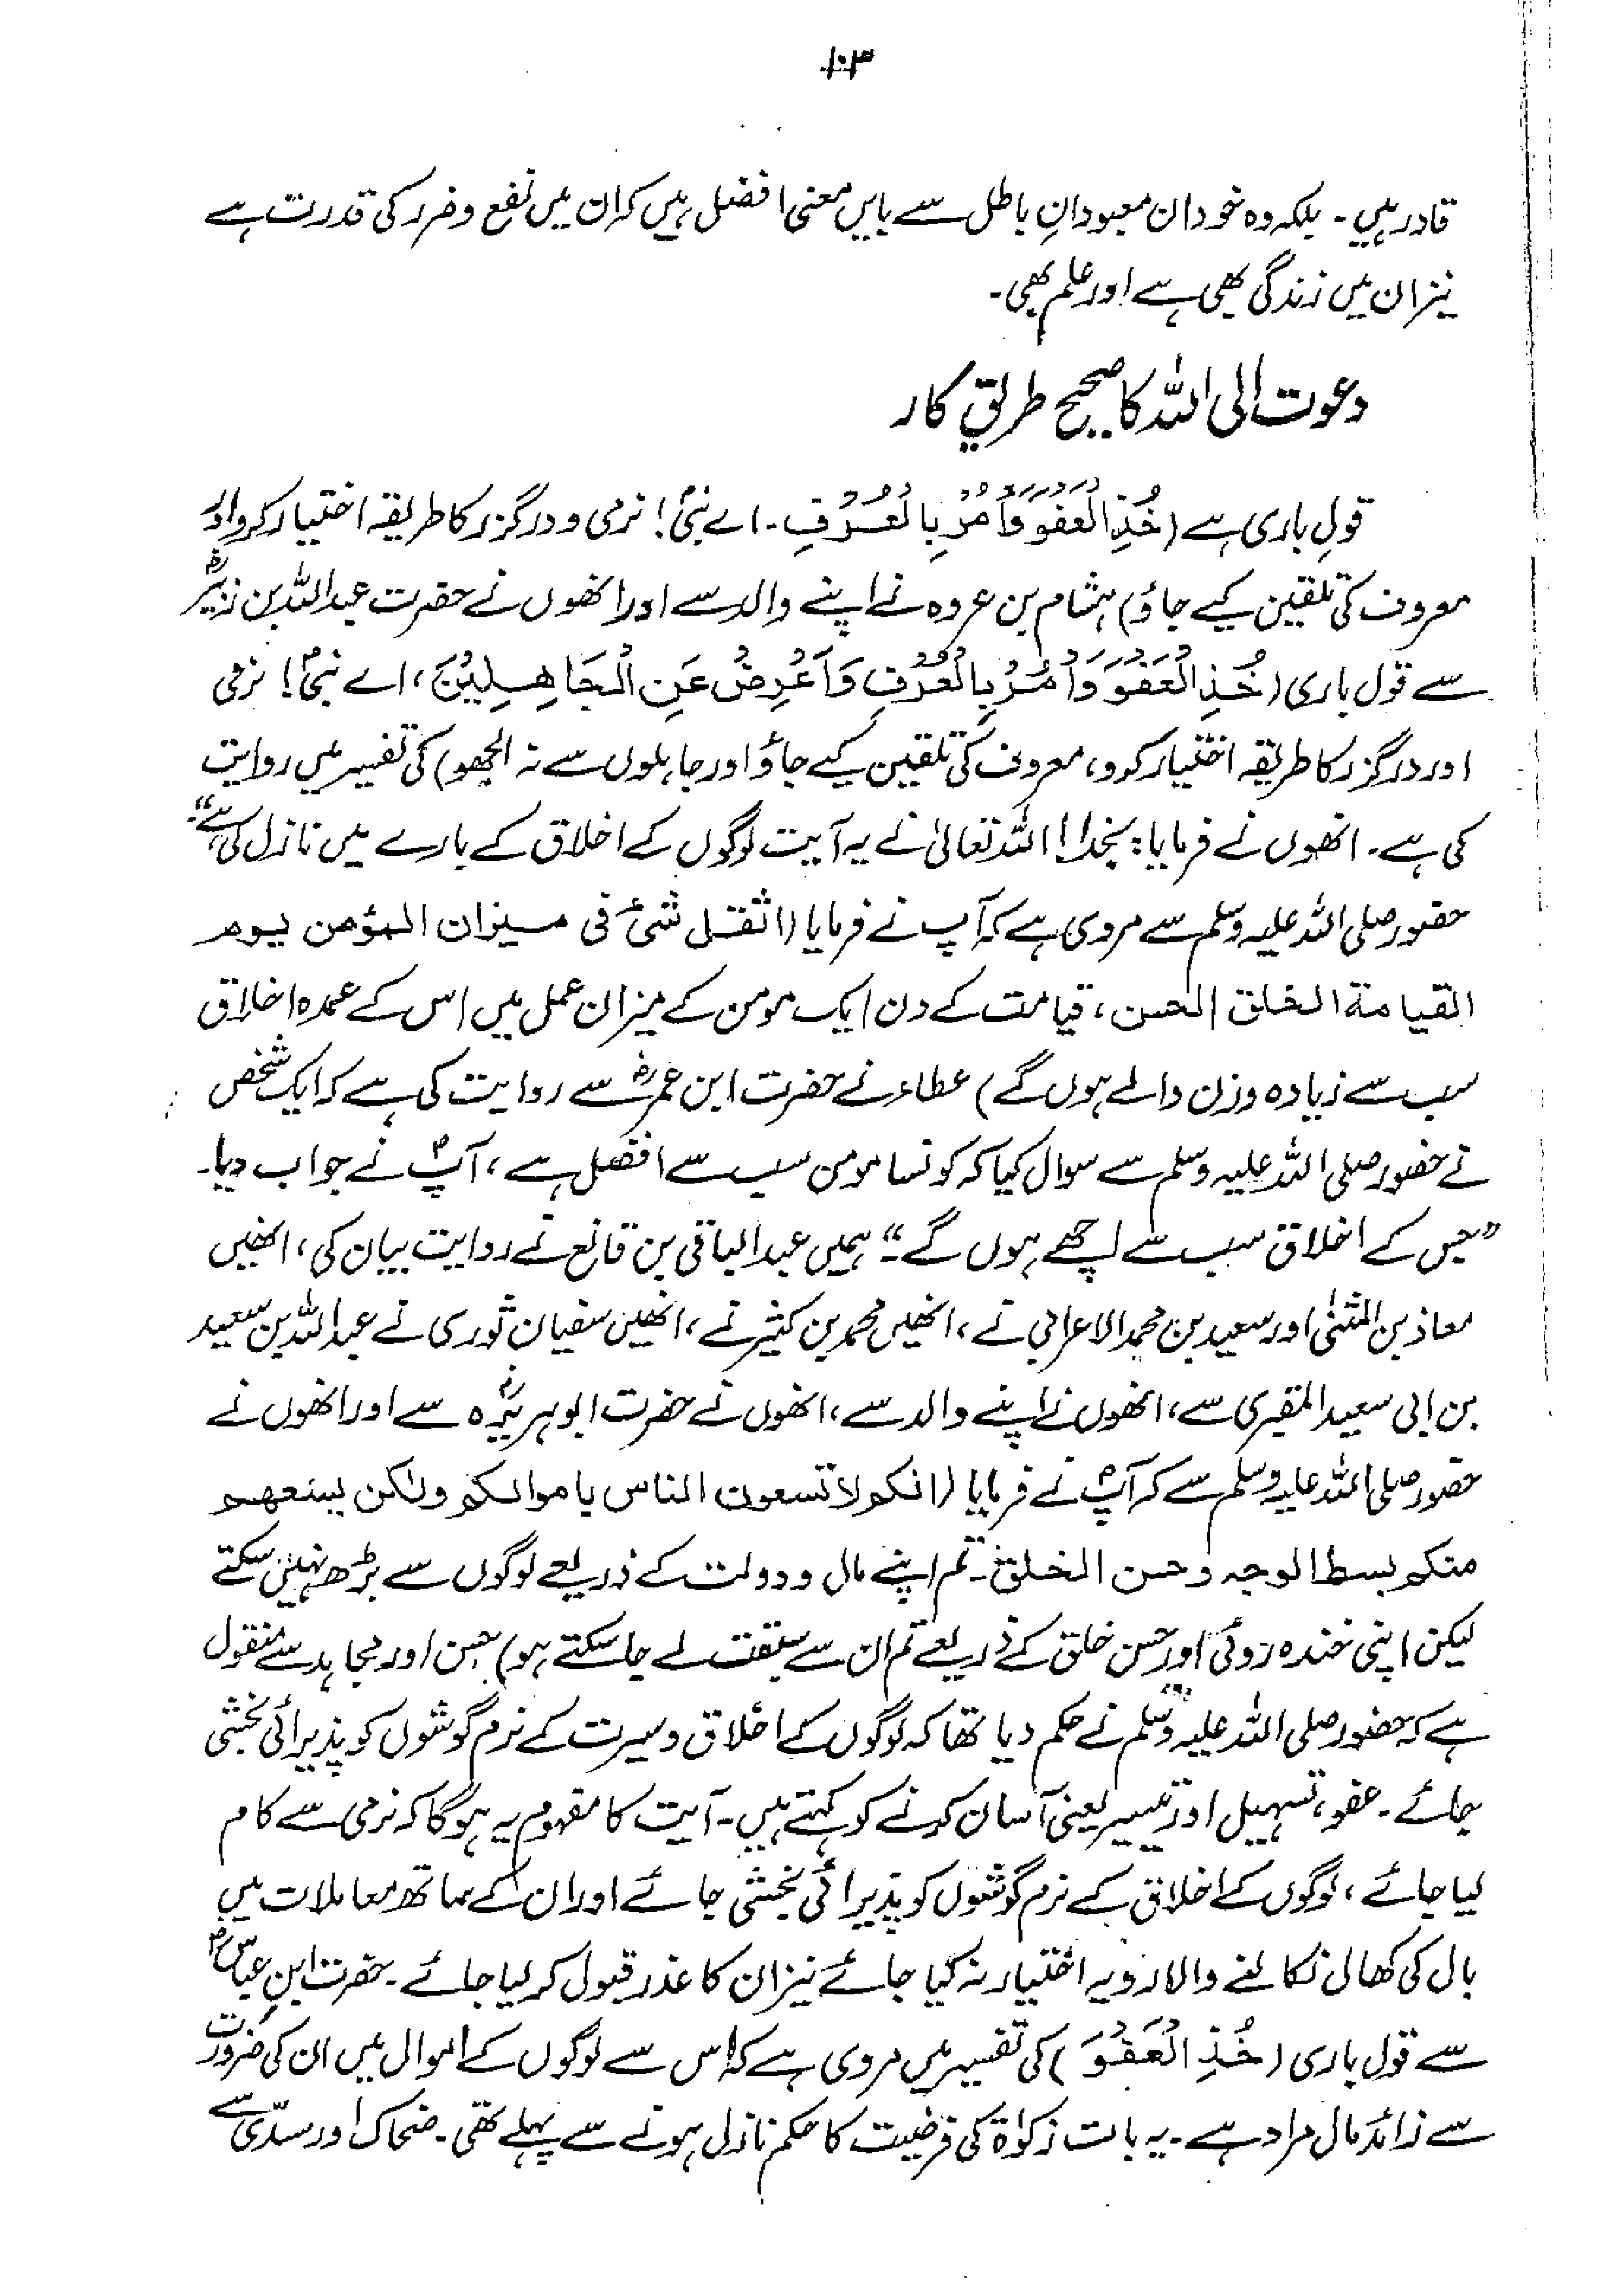 ۱۰۳
قادر ہیں۔ بلکہ وہ خود ان معبودانِ باطل سے بایں معنی افضل ہیں کہ ان میں نفع و ضرر کی قدرت ہے
نیز ان میں زندگی بھی ہے اور علم بھی۔
دعوت الی اللہ کا صحیح طریق کار
قولِ باری ہے (خُذِ الْعَفْوَ وَأْمُرْ بِالْعُرْفِ۔ اے نبیؐ! نرمی و درگزر کا طریقہ اختیار کرو اور
معروف کی تلقین کیے جاؤ) ہشام بن عروہ نے اپنے والد سے اور انھوں نے حضرت عبداللہ بن زبیرؓ
سے قول باری (خُذِ الْعَفْوَ وَأْمُرْ بِالْعُرْفِ وَأَعْرِضْ عَنِ الْجَاهِلِيْنَ، اے نبیؐ! نرمی
اور درگزر کا طریقہ اختیار کرو، معروف کی تلقین کیے جاؤ اور جاہلوں سے نہ الجھو) کی تفسیر میں روایت
کی ہے۔ انھوں نے فرمایا: بخدا! اللہ تعالیٰ نے یہ آیت لوگوں کے اخلاق کے بارے میں نازل کی ہے“۔
حضور صلی اللہ علیہ وسلم سے مروی ہے کہ آپ نے فرمایا (اثقل شئ فی میزان المؤمن یوم
القیامۃ الخلق الحسن، قیامت کے دن ایک مومن کے میزان عمل میں اس کے عمدہ اخلاق
سب سے زیادہ وزن والے ہوں گے) عطاء نے حضرت ابن عمرؓ سے روایت کی ہے کہ ایک شخص
نے حضور صلی اللہ علیہ وسلم سے سوال کیا کہ کونسا مومن سب سے افضل ہے، آپؐ نے جواب دیا۔
”جس کے اخلاق سب سے اچھے ہوں گے“۔ ہمیں عبدالباقی بن قانع نے روایت بیان کی، انھیں
معاذ بن المثنیٰ اور سعید بن محمد الاعرابی نے، انھیں محمد بن کثیر نے، انھیں سفیان ثوری نے عبداللہ بن سعید
بن ابی سعید المقبری سے، انھوں نے اپنے والد سے، انھوں نے حضرت ابوہریرہؓ سے اور انھوں نے
حضور صلی اللہ علیہ وسلم سے کہ آپؐ نے فرمایا (انکم لا تسعون الناس باموالکم ولکن یسعھم
منکم بسط الوجہ وحسن الخلق۔ تم اپنے مال و دولت کے ذریعے لوگوں سے بڑھ نہیں سکتے
لیکن اپنی خندہ روئی اور حسن خلق کے ذریعے تم ان سے سبقت لے جا سکتے ہو) حسن اور مجاہد سے منقول
ہے کہ حضور صلی اللہ علیہ وسلم نے حکم دیا تھا کہ لوگوں کے اخلاق و سیرت کے نرم گوشوں کو پذیرائی بخشی
جائے۔ عفو، تسہیل اور تیسیر یعنی آسان کرنے کو کہتے ہیں۔ آیت کا مفہوم یہ ہوگا کہ نرمی سے کام
لیا جائے، لوگوں کے اخلاق کے نرم گوشوں کو پذیرائی بخشی جائے اور ان کے ساتھ معاملات میں
بال کی کھال نکالنے والا رویہ اختیار نہ کیا جائے نیز ان کا عذر قبول کر لیا جائے۔ حضرت ابن عباسؓ
سے قول باری (خُذِ الْعَفْوَ) کی تفسیر میں مروی ہے کہ اس سے لوگوں کے اموال میں ان کی ضرورت
سے زائد مال مراد ہے۔ یہ بات زکوٰۃ کی فرضیت کا حکم نازل ہونے سے پہلے تھی۔ ضحاک اور سدّی سے